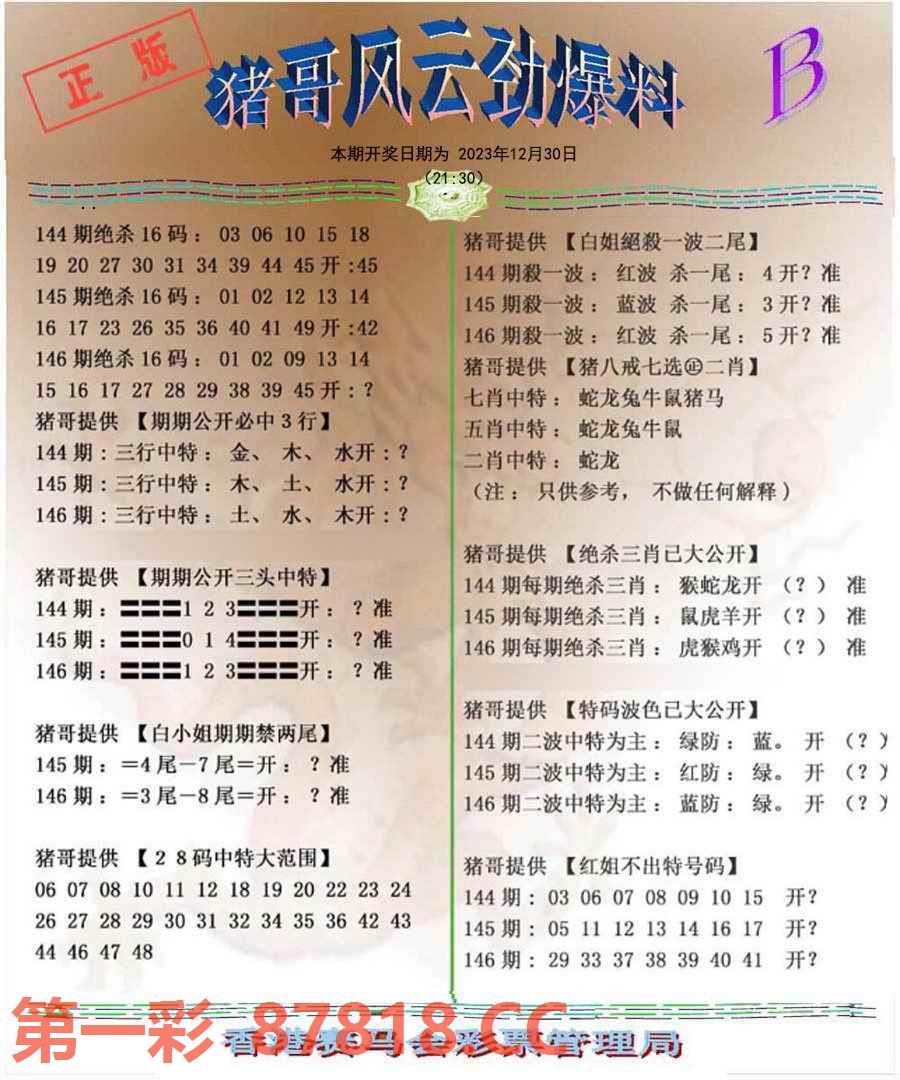 正版
猪哥风云劲爆料
B
本期开奖日期为 2023年12月30日
(21:30)
144期绝杀16码：03 06 10 15 18
19 20 27 30 31 34 39 44 45开:45
145期绝杀16码：01 02 12 13 14
16 17 23 26 35 36 40 41 49开:42
146期绝杀16码：01 02 09 13 14
15 16 17 27 28 29 38 39 45开：?
猪哥提供 【期期公开必中3行】
144期:三行中特：金、 木、 水开：?
145期:三行中特：木、 土、 水开：?
146期:三行中特：土、 水、 木开：?
猪哥提供 【期期公开三头中特】
144期：〓〓〓1 2 3〓〓〓开：？准
145期：〓〓〓0 1 4〓〓〓开：？准
146期：〓〓〓1 2 3〓〓〓开：？准
猪哥提供 【白小姐期期禁两尾】
145期：=4尾－7尾=开：？准
146期：=3尾－8尾=开：？准
猪哥提供 【２８码中特大范围】
06 07 08 10 11 12 18 19 20 22 23 24
26 27 28 29 30 31 32 34 35 36 42 43
44 46 47 48
猪哥提供 【白姐絕殺一波二尾】
144期殺一波：红波 杀一尾：4开？准
145期殺一波：蓝波 杀一尾：3开？准
146期殺一波：红波 杀一尾：5开？准
猪哥提供 【猪八戒七选㊣二肖】
七肖中特：蛇龙兔牛鼠猪马
五肖中特：蛇龙兔牛鼠
二肖中特：蛇龙
（注：只供参考，不做任何解释）
猪哥提供 【绝杀三肖已大公开】
144期每期绝杀三肖：猴蛇龙开 （？） 准
145期每期绝杀三肖：鼠虎羊开 （？） 准
146期每期绝杀三肖：虎猴鸡开 （？） 准
猪哥提供 【特码波色已大公开】
144期二波中特为主：绿防：蓝。 开 （？）
145期二波中特为主：红防：绿。 开 （？）
146期二波中特为主：蓝防：绿。 开 （？）
猪哥提供 【红姐不出特号码】
144期：03 06 07 08 09 10 15 开?
145期：05 11 12 13 14 16 17 开?
146期：29 33 37 38 39 40 41 开?
第一彩 87818.CC
香港赛马会彩票管理局